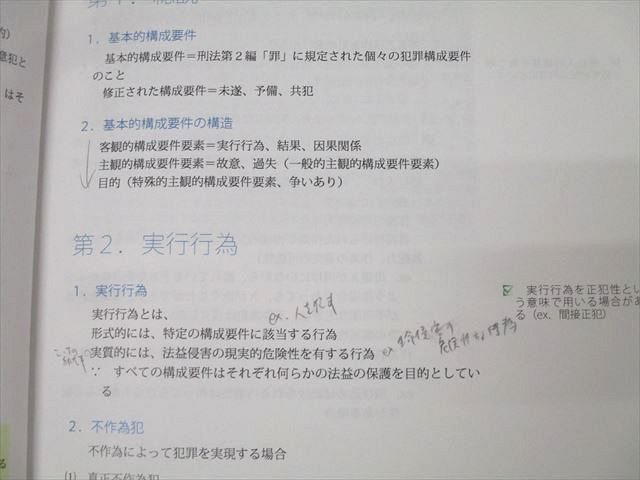 意犯と
はそ
1．基本的構成要件
基本的構成要件＝刑法第２編「罪」に規定された個々の犯罪構成要件
のこと
修正された構成要件＝未遂、予備、共犯
2．基本的構成要件の構造
客観的構成要件要素＝実行行為、結果、因果関係
主観的構成要件要素＝故意、過失（一般的主観的構成要件要素）
目的（特殊的主観的構成要件要素、争いあり）
第２．実行行為
1．実行行為
実行行為とは、
ex. 人を殺す
形式的には、特定の構成要件に該当する行為
実質的には、法益侵害の現実的危険性を有する行為
ex
∵　すべての構成要件はそれぞれ何らかの法益の保護を目的としてい
る
実行行為を正犯性とい
う意味で用いる場合があ
る（ex. 間接正犯）
2．不作為犯
不作為によって犯罪を実現する場合
⑴　真正不作為犯